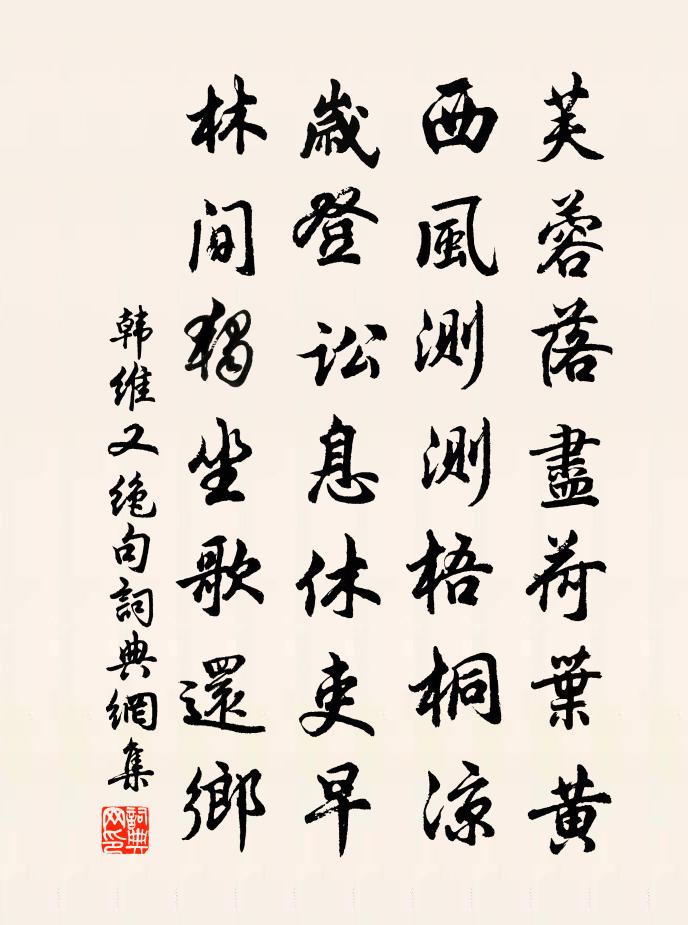 芙蓉落盡荷葉黃
西風測測梧桐涼
歲登訟息休吏早
林間獨坐歌還鄉
韩維又絕句詞典網集
詞典网印